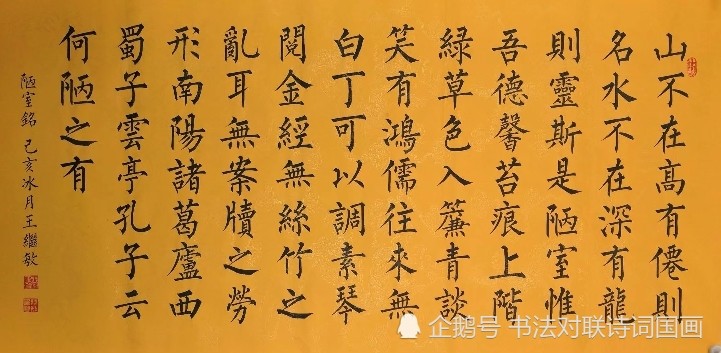 山不在高有僊則
名水不在深有龍
則靈斯是陋室惟
吾德馨苔痕上階
綠草色入簾青談
笑有鴻儒往來無
白丁可以調素琴
閱金經無絲竹之
亂耳無案牘之勞
形南陽諸葛廬西
蜀子雲亭孔子云
何陋之有
陋室銘 己亥冰月王繼敏
企鹅号 书法对联诗词国画